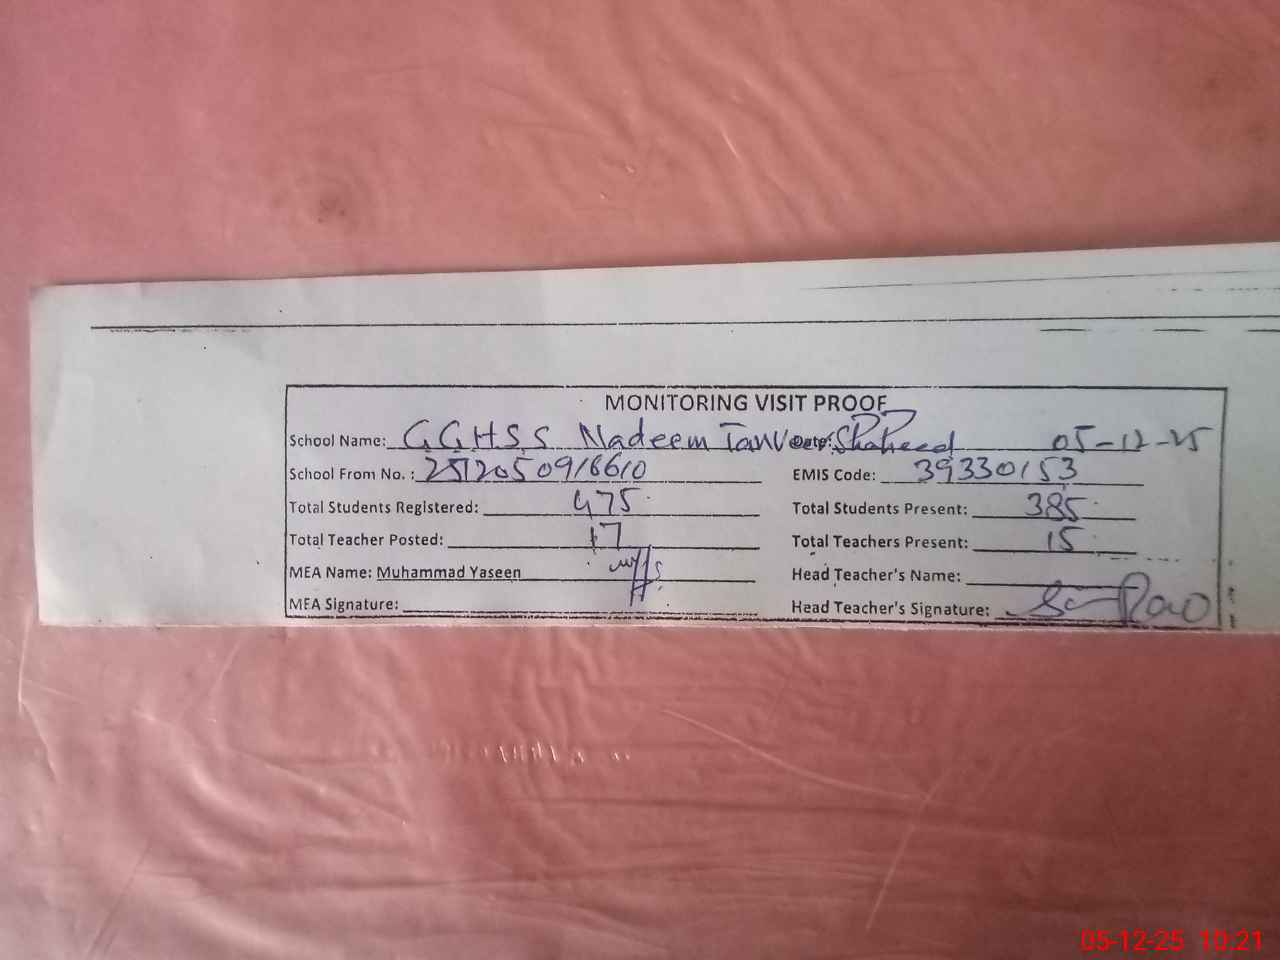 MONITORING VISIT PROOF
School Name: GGHSS Nadeem Tanveer Shaheed Date: 05-12-25
School From No. : 2512050916610 EMIS Code: 39330153
Total Students Registered: 475 Total Students Present: 385
Total Teacher Posted: 17 Total Teachers Present: 15
MEA Name: Muhammad Yaseen Head Teacher's Name:
MEA Signature: Head Teacher's Signature:
05-12-25 10:21